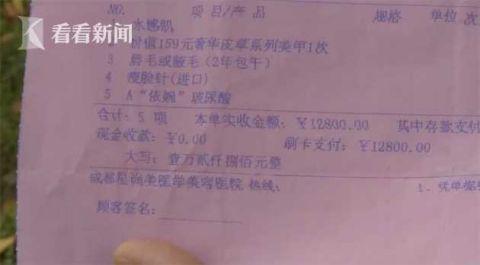 看看新闻
NO. 项目/产品 规格 单位
水感肌
价值159元奢华皮草系列美甲1次
3 唇毛或腋毛(2年包干)
4 瘦脸针(进口)
5 A“依婉”玻尿酸
合计: 5 项 本单实收金额: ￥12800.00 其中存款支付
现金收款: ￥0.00 刷卡支付: ￥12800.00
大写: 壹万贰仟捌佰元整
成都星尚美医学美容医院 热线: 1、凭单据
顾客签名: